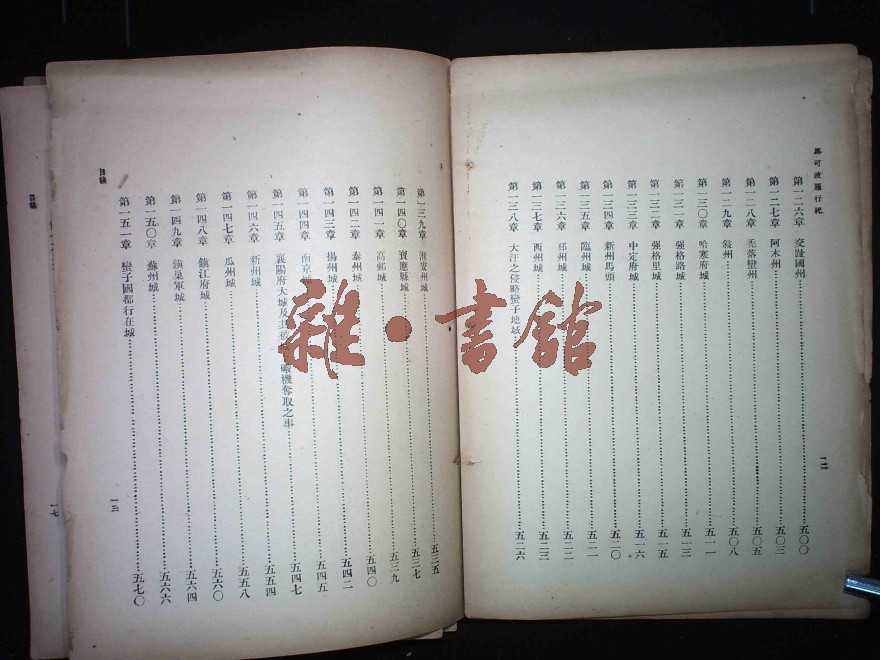 馬可波羅行紀
第一二六章　交趾國州……五〇〇
第一二七章　阿木州……五〇三
第一二八章　禿落蠻州……五〇五
第一二九章　敍州……五〇八
第一三〇章　哈寒府城……五一一
第一三一章　強格路城……五一三
第一三二章　強格里城……五一五
第一三三章　中定府城……五一六
第一三四章　新州馬頭……五二〇
第一三五章　臨州城……五二一
第一三六章　邳州城……五二二
第一三七章　西州城……五二三
第一三八章　大汗之侵略蠻子地域……五二六
一二
目錄
第一三九章　淮安州城……五三五
第一四〇章　寶應縣城……五三七
第一四一章　高郵城……五三九
第一四二章　泰州城……五四〇
第一四三章　揚州城……五四二
第一四四章　南京城……五四五
第一四五章　襄陽府大城及其被　機奪取之事……五四七
第一四六章　新州城……五五四
第一四七章　瓜州城……五五八
第一四八章　鎮江府城……五六〇
第一四九章　鎮巢軍城……五六四
第一五〇章　蘇州城……五六六
第一五一章　蠻子國都行在城……五七〇
一三
目錄
一七
雜·書館